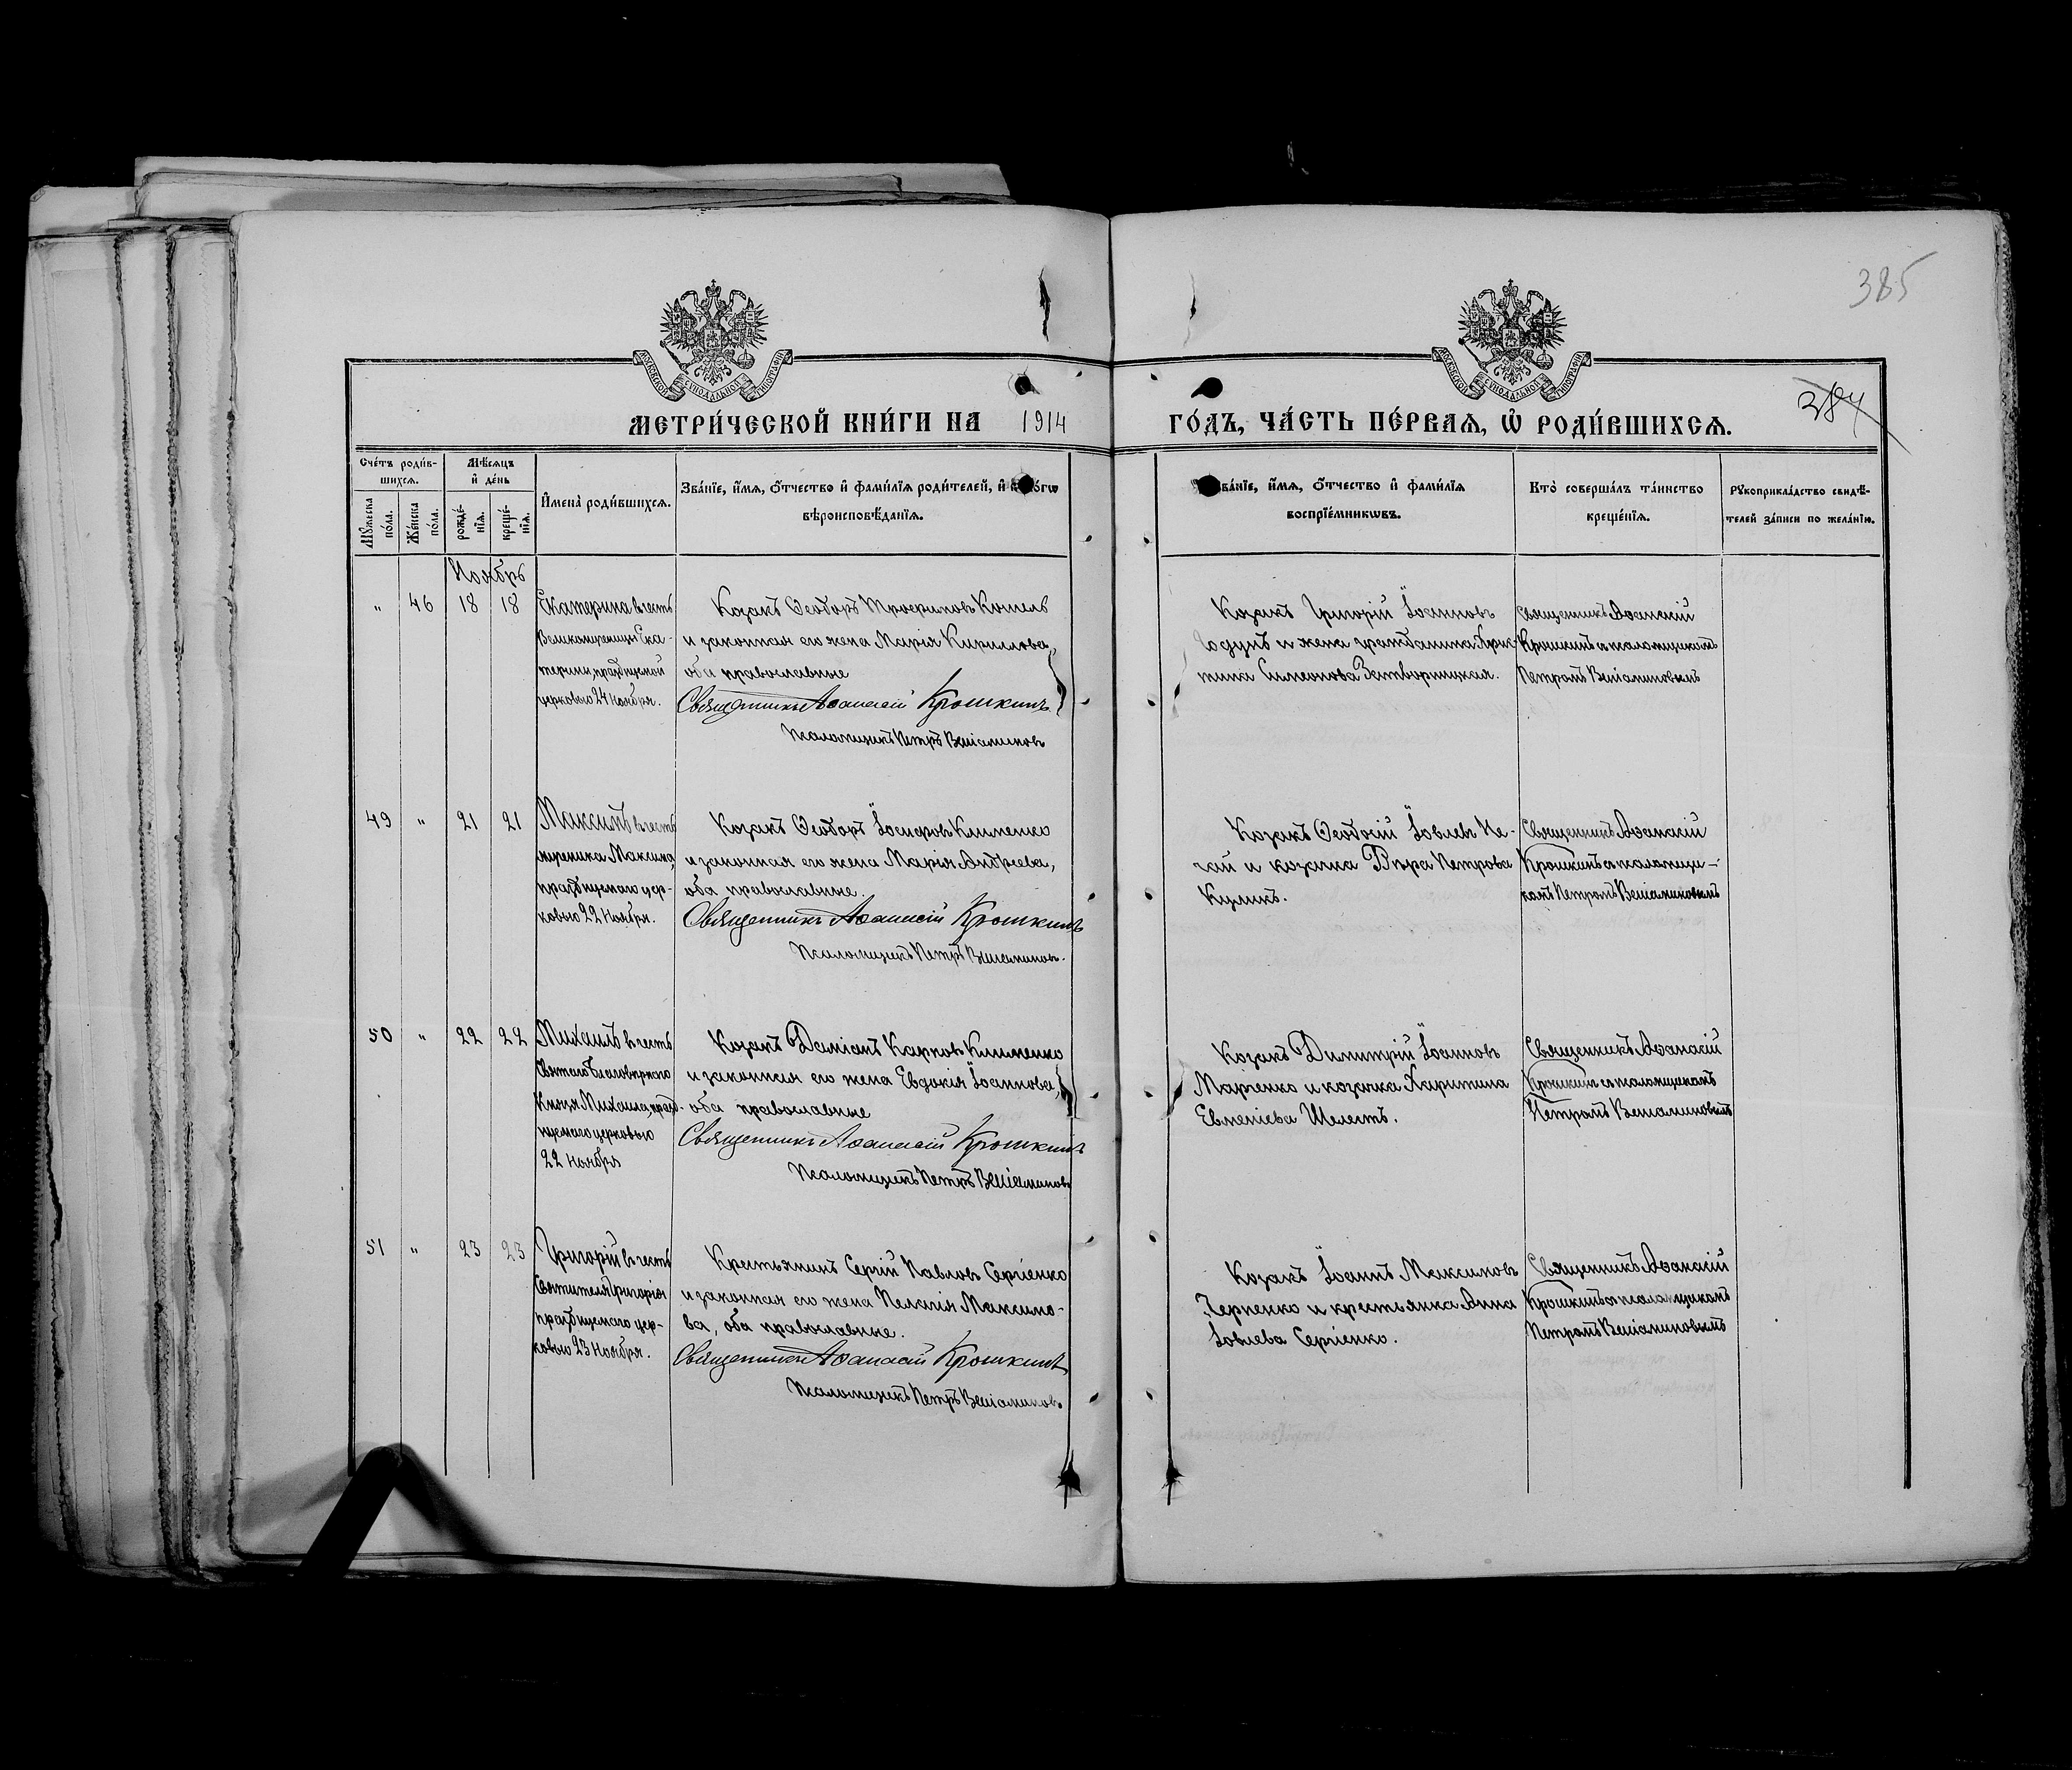 385
МОСКОВСКОЙ СѴНОДАЛЬНОЙ ТИПОГРАФІИ
МОСКОВСКОЙ СѴНОДАЛЬНОЙ ТИПОГРАФІИ
384
МЕТРИ́ЧЕСКОЙ КНИ́ГИ НА 1914
ГО́ДЪ, ЧА́СТЬ ПЕ́РВАѦ, Ѡ҆ РОДИ́ВШИХСѦ.
Сче́тъ роди́в-
шихсѧ.
Мѣ́сѧцъ
и҆ де́нь
Мꙋ́жеска по́ла.
Же́нска по́ла.
рожде́-нїѧ.
креще́-нїѧ.
И҆мена̀ роди́вшихсѧ.
Зва́нїе, и҆́мѧ, ѻ҆́тчество и҆ фами́лїѧ роди́телей, и҆ ко́гѡ
вѣроисповѣ́данїѧ.
Зва́нїе, и҆́мѧ, ѻ҆́тчество и҆ фами́лїѧ
воспрїе́мникѡвъ.
Кто̀ соверша́лъ та́инство
креще́нїѧ.
Рꙋкоприкла́дство свидѣ́-
телей за́писи по жела́нїю.
Ноябрь
" 46 18 18
Екатерина въ честь
Великомученицы Ека-
терины, празднуемой
церковью 24 Ноября.
Козакъ Ѳеодоръ Трофимовъ Кошель
и законная его жена Марія Кириллова,
оба православные
Священникъ Аѳанасій Крошкинъ
Псаломщикъ Петръ Веніаминовъ
Козакъ Григорій Іоанновъ
Годунъ и жена гражданина Хрис-
тина Симеонова Затворницкая.
Священникъ Аѳанасій
Крошкинъ съ псаломщикомъ
Петромъ Веніаминовымъ
49 " 21 21
Максимъ въ честь
мученика Максима,
празднуемаго цер-
ковью 22 Ноября.
Козакъ Ѳеодоръ Іосифовъ Клименко
и законная его жена Марія Андреева,
оба православные.
Священникъ Аѳанасій Крошкинъ
Псаломщикъ Петръ Веніаминовъ.
Козакъ Ѳеодосій Іовлевъ Не-
гай и козачка Вѣра Петрова
Куликъ.
Священникъ Аѳанасій
Крошкинъ съ псаломщи-
комъ Петромъ Веніаминовымъ
50 " 22 22
Михаилъ въ честь
Святаго Благовѣрнаго
Князя Михаила, празд-
нуемаго церковью
22 Ноября
Козакъ Даміанъ Карповъ Клименко
и законная его жена Евдокія Іоаннова,
оба православные
Священникъ Аѳанасій Крошкинъ
Псаломщикъ Петръ Веніаминовъ
Козакъ Димитрій Іоанновъ
Марченко и козачка Харитина
Евменіева Шелестъ.
Священникъ Аѳанасій
Крошкинъ съ псаломщикомъ
Петромъ Веніаминовымъ
51 " 23 23
Григорій въ честь
Святителя Григорія
празднуемаго цер-
ковью 23 Ноября.
Крестьянинъ Сергій Павловъ Сергіенко
и законная его жена Пелагія Максимо-
ва, оба православные.
Священникъ Аѳанасій Крошкинъ
Псаломщикъ Петръ Веніаминовъ
Козакъ Іоаннъ Максимовъ
Черненко и крестьянка Анна
Іовлева Сергіенко.
Священникъ Аѳанасій
Крошкинъ съ псаломщикомъ
Петромъ Веніаминовымъ